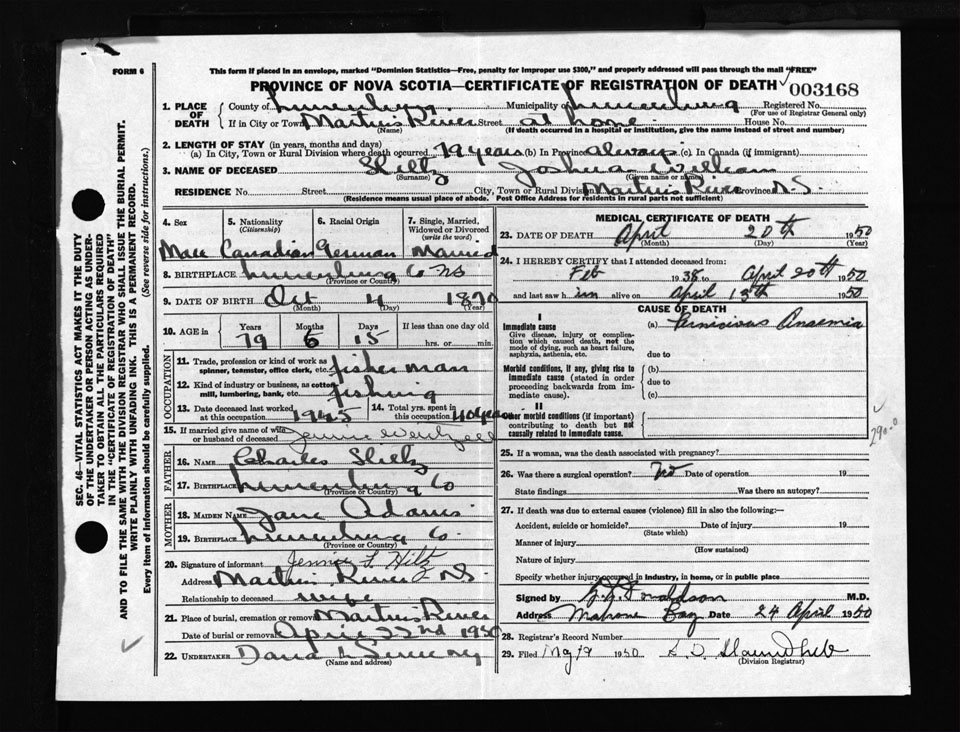 FORM 6
This form if placed in an envelope, marked "Dominion Statistics—Free, penalty for improper use $300," and properly addressed will pass through the mail "FREE"
PROVINCE OF NOVA SCOTIA—CERTIFICATE OF REGISTRATION OF DEATH 003168
1. PLACE OF DEATH County of Lunenburg Municipality of Lunenburg Registered No.
(For use of Registrar General only)
If in City or Town Martins River Street at home House No.
(Name) (If death occurred in a hospital or institution, give the name instead of street and number)
2. LENGTH OF STAY (in years, months and days)
(a) In City, Town or Rural Division where death occurred 79 years (b) In Province always (c) In Canada (if immigrant)
3. NAME OF DECEASED Joshua William
(Surname) (Given name or names)
RESIDENCE No. Street City, Town or Rural Division Martins River Province N.S.
(Residence means usual place of abode. Post Office Address for residents in rural parts not sufficient)
4. Sex 5. Nationality (Citizenship) 6. Racial Origin 7. Single, Married, Widowed or Divorced (write the word)
Male Canadian German Married
8. BIRTHPLACE Lunenburg Co NS
(Province or Country)
9. DATE OF BIRTH Oct 4 1870
(Month) (Day) (Year)
10. AGE in Years Months Days If less than one day old
79 6 15 hrs. or min.
OCCUPATION
11. Trade, profession or kind of work as spinner, teamster, office clerk, etc. fisherman
12. Kind of industry or business, as cotton mill, lumbering, bank, etc. fishing
13. Date deceased last worked at this occupation 1945 14. Total yrs. spent in this occupation 40 years
15. If married give name of wife or husband of deceased Jennie Wentzell
FATHER
16. NAME Charles
17. BIRTHPLACE Lunenburg Co
(Province or Country)
MOTHER
18. MAIDEN NAME Jane Adams
19. BIRTHPLACE Lunenburg Co.
(Province or Country)
20. Signature of informant Jennie L Hiltz
Address Martins River NS.
Relationship to deceased wife
21. Place of burial, cremation or removal Martins River
Date of burial or removal April 22nd 1950
22. UNDERTAKER
(Name and address)
MEDICAL CERTIFICATE OF DEATH
23. DATE OF DEATH April 20th 1950
(Month) (Day) (Year)
24. I HEREBY CERTIFY that I attended deceased from:
Feb 1938 to April 20th 1950
and last saw h im alive on April 13th 1950
CAUSE OF DEATH
I
Immediate cause (a) Pernicious Anaemia
Give disease, injury or complication which caused death, not the mode of dying, such as heart failure, asphyxia, asthenia, etc.
due to
Morbid conditions, if any, giving rise to immediate cause (stated in order proceeding backwards from immediate cause). (b)
due to
(c)
II
Other morbid conditions (if important) contributing to death but not causally related to immediate cause.
290.0
25. If a woman, was the death associated with pregnancy?
26. Was there a surgical operation? No Date of operation 19
State findings Was there an autopsy?
27. If death was due to external causes (violence) fill in also the following:—
Accident, suicide or homicide? Date of injury 19
(State which)
Manner of injury
(How sustained)
Nature of injury
Specify whether injury occurred in industry, in home, or in public place
Signed by Donaldson M.D.
Address Mahone Bay Date 24 April 1950
28. Registrar's Record Number
29. Filed 1950
(Division Registrar)
SEC. 46—VITAL STATISTICS ACT MAKES IT THE DUTY
OF THE UNDERTAKER OR PERSON ACTING AS UNDER-
TAKER TO OBTAIN ALL THE PARTICULARS REQUIRED
IN THE "CERTIFICATE OF REGISTRATION OF DEATH"
AND TO FILE THE SAME WITH THE DIVISION REGISTRAR WHO SHALL ISSUE THE BURIAL PERMIT.
WRITE PLAINLY WITH UNFADING INK. THIS IS A PERMANENT RECORD.
Every item of information should be carefully supplied. (See reverse side for instructions.)